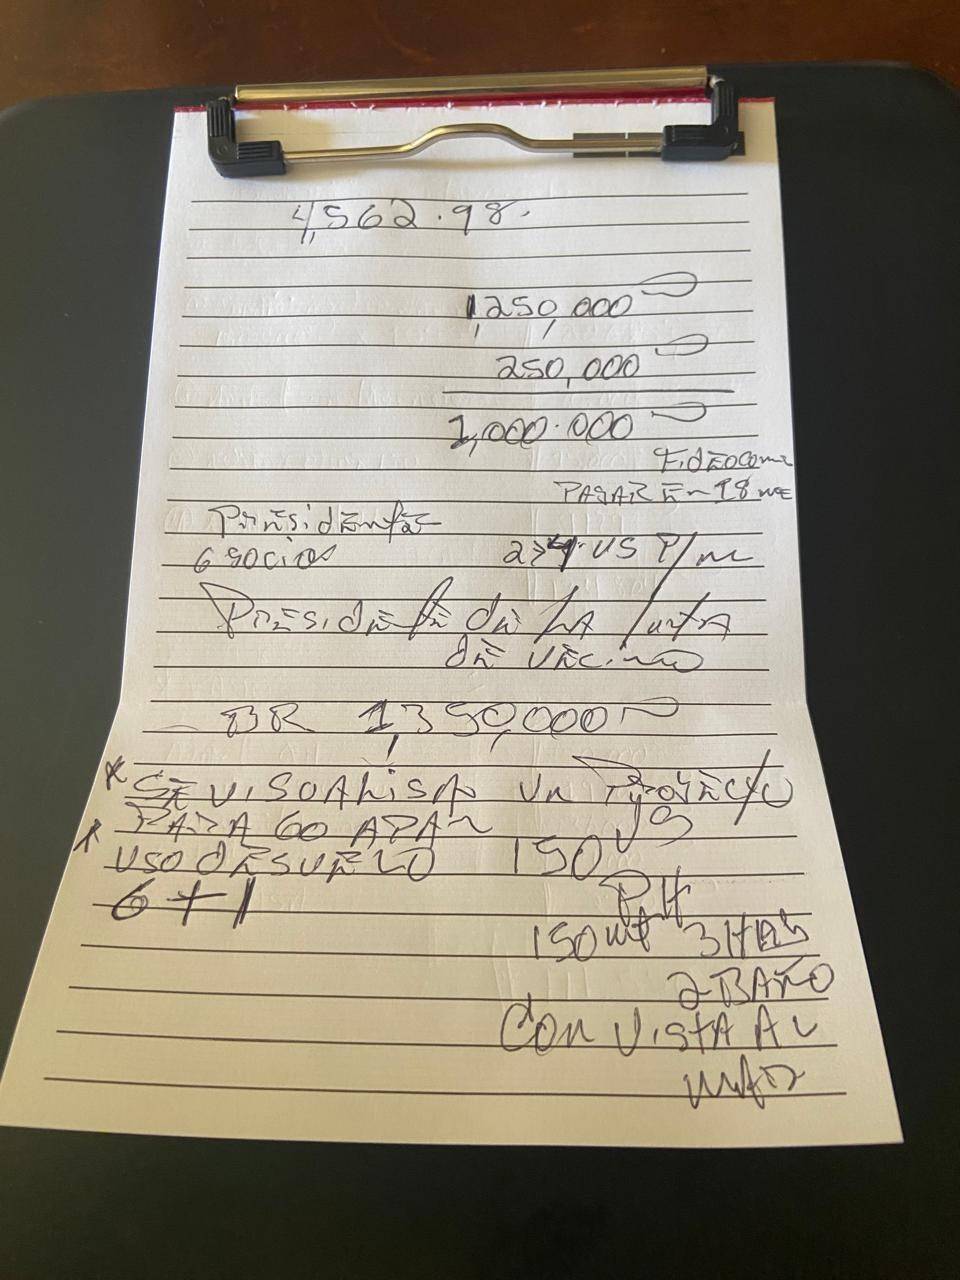 4,562.98.
1,250,000
250,000
1,000.000
PAGAR EN 18
Presidente
6 socios
US P/m
Presidente de LA Junta
de vecino
BR 1,350,000
* SE VISOALISA Un Proyecto
* PARA 60 APAR
US
USO DE SUELO 150
6+1
PH
150 mt 3 HABS
2 BAÑO
Con VISTA AL
mAR